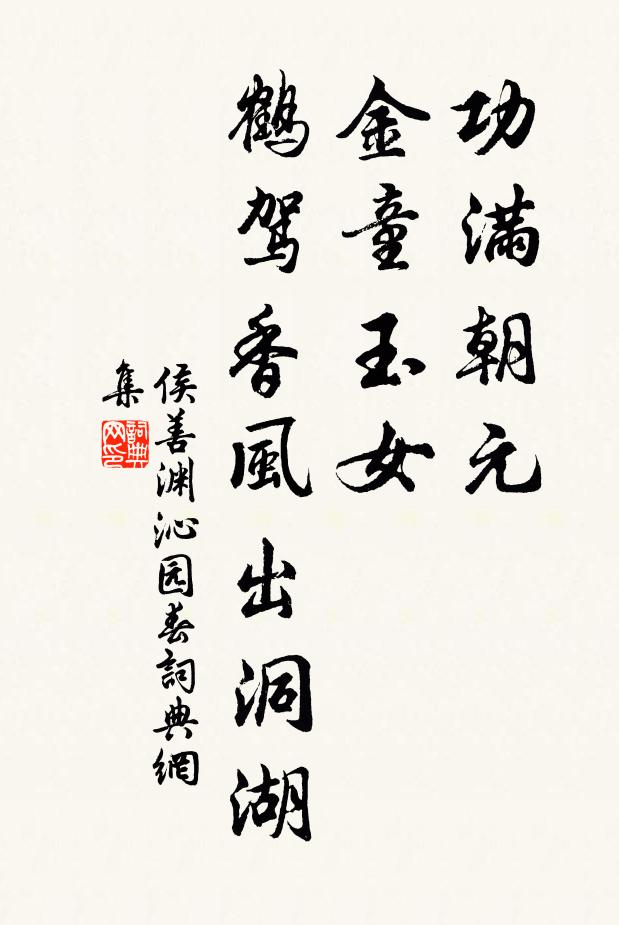 功滿朝元
金童玉女
鶴駕香風出洞湖
侯善渊沁园春詞典網
集
詞典
网印